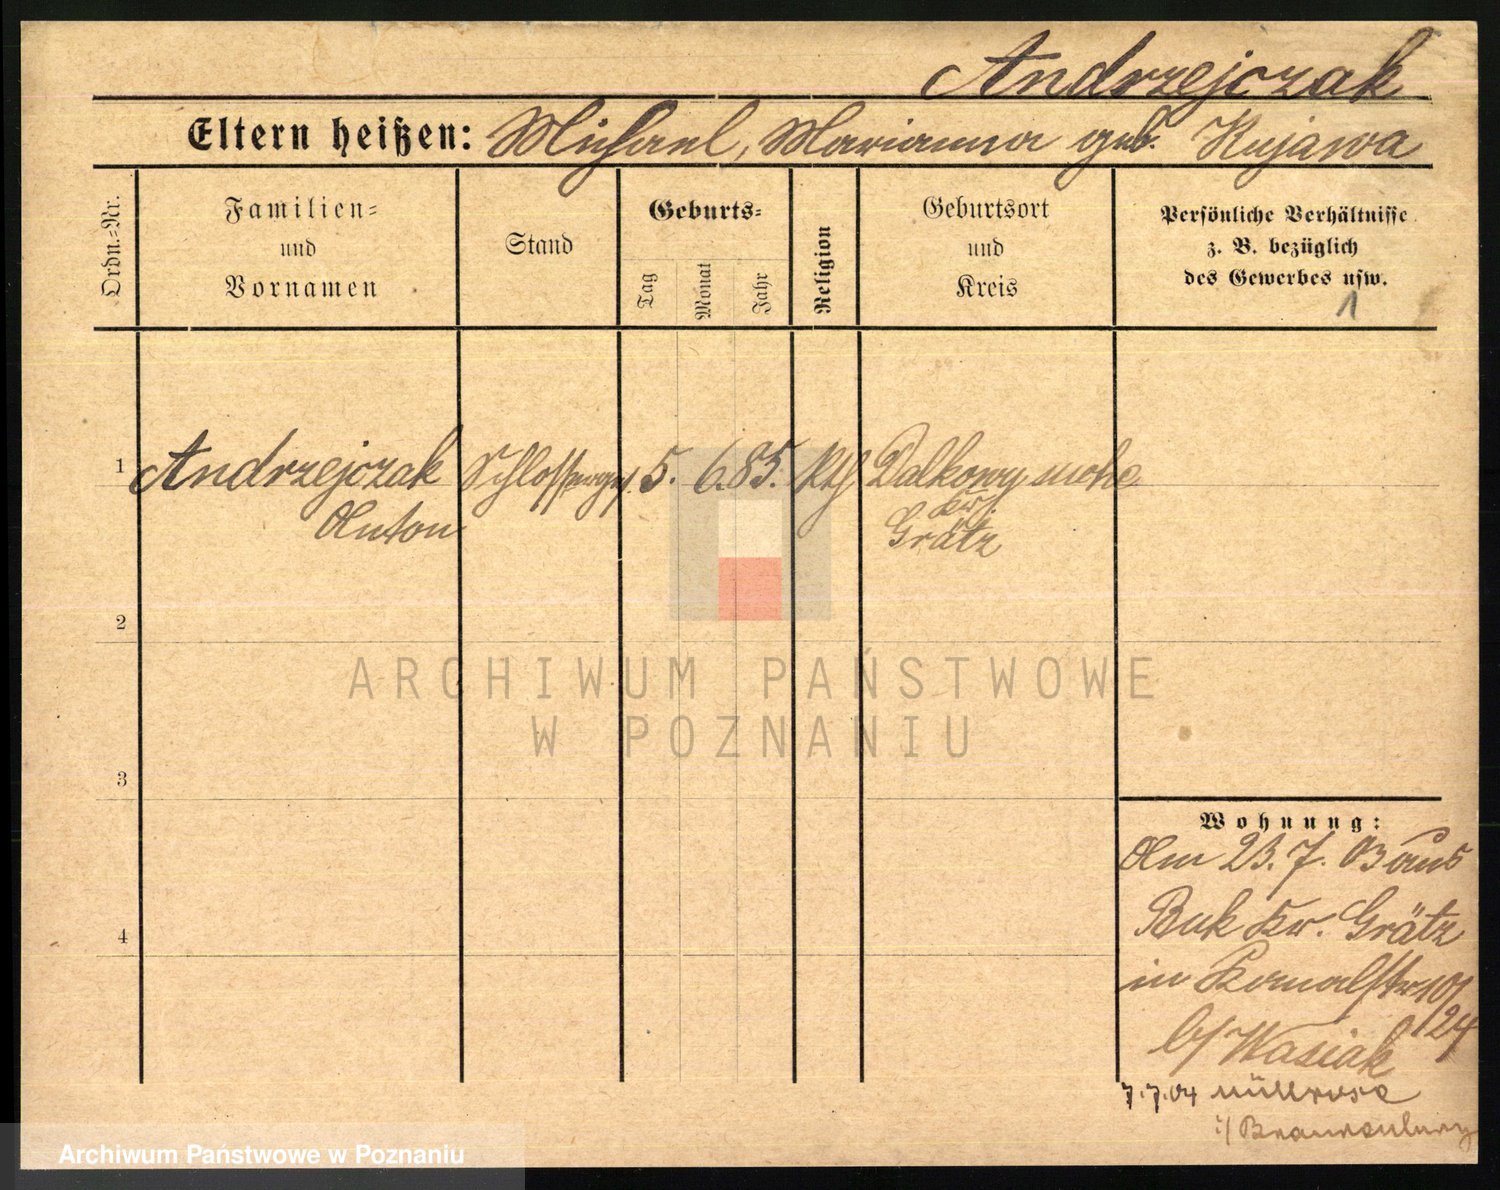 Andrzejczak
Eltern heißen: Michael, Marianna geb. Kujawa
Ordn.=Nr.
Familien=
und
Vornamen
Stand
Geburts=
Tag
Monat
Jahr
Religion
Geburtsort
und
Kreis
Persönliche Verhältnisse
z. B. bezüglich
des Gewerbes usw.
1
1 Andrzejczak Schlosserges. 5. 6. 85. kth
Anton
Grätz
2
3
4
Wohnung:
Am 23. 7. 03 aus
Buk Kr. Grätz
in
b/ Wasiak
7.7.04 Müllrose
i/ Brandenburg
ARCHIWUM PAŃSTWOWE
W POZNANIU
Archiwum Państwowe w Poznaniu